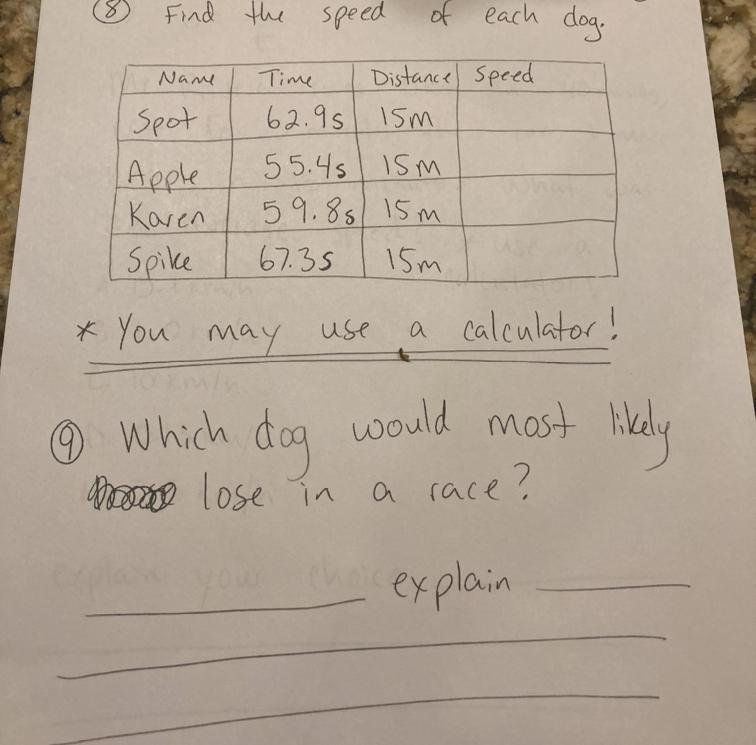 ⑧ Find the speed of each dog.
Name Time Distance Speed
Spot 62.9s 15m
Apple 55.4s 15m
Karen 59.8s 15m
Spike 67.3s 15m
* You may use a calculator!
⑨ Which dog would most likely
lose in a race?
explain